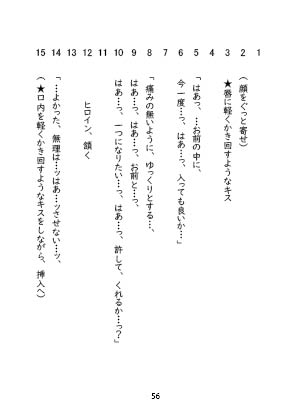 1
2 (顔をぐっと寄せ)
3 ★唇に軽くかき回すようなキス
4
5 「はあっ、…お前の中に、
6 今一度…っ、はあ…っ、入っても良いか…」
7
8 「痛みの無いように、ゆっくりとする…、
9 はあ…っ、はあ…っ、お前と…っ、
10 はあ…っ、一つになりたい…っ、はあ…っ、許して、くれるか…っ?」
11
12 ヒロイン、頷く
13
14 「…よかった、無理は…ッはあ…ッさせない…ッ、
15 (★口内を軽くかき回すようなキスをしながら、挿入へ)
56